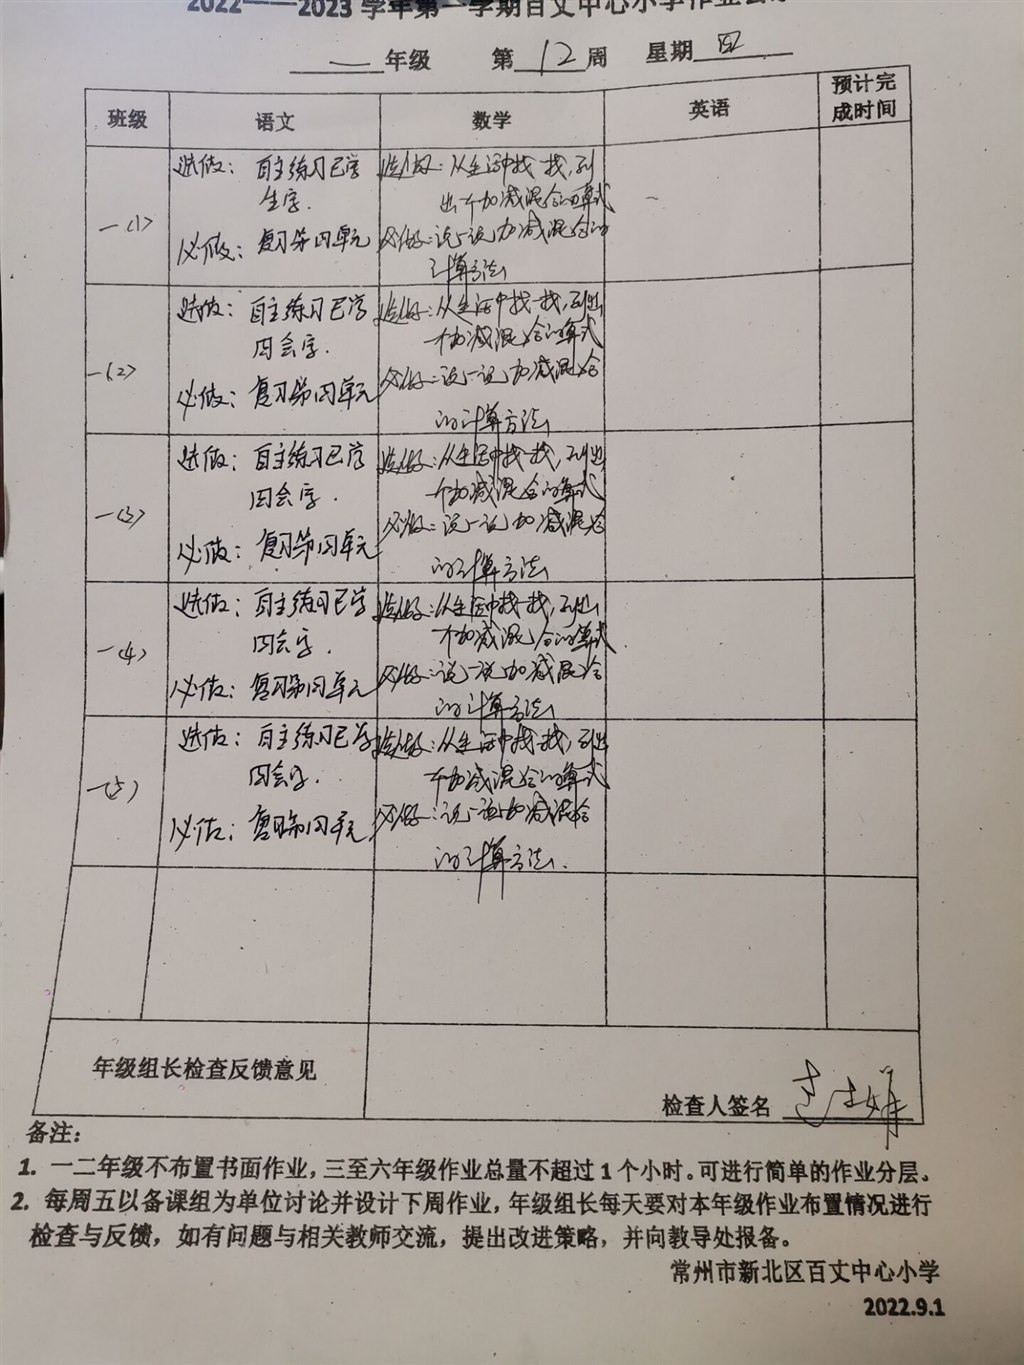 2022——2023学年第一学期百丈中心小学作业公
一年级 第12周 星期四
班级 语文 数学 英语 预计完成时间
一(1)
选做：自主练习已学
生字.
必做：复习第四单元
选做：从生活中找一找,列
出个加减混合的算式
必做：说一说加减混合的
计算方法
一(2)
选做：自主练习已学
四会字.
必做：复习第四单元
选做：从生活中找一找,列出
个加减混合的算式
必做：说一说加减混合
的计算方法
一(3)
选做：自主练习已学
四会字.
必做：复习第四单元
选做：从生活中找一找,列出
个加减混合的算式
必做：说一说加减混合
的计算方法
一(4)
选做：自主练习已学
四会字.
必做：复习第四单元
选做：从生活中找一找,列出
个加减混合的算式.
必做：说一说加减混合
的计算方法
一(5)
选做：自主练习已学
四会字.
必做：复习第四单元
选做：从生活中找一找,列出
个加减混合的算式
必做：说一说加减混合
的计算方法.
年级组长检查反馈意见
检查人签名
备注：
1. 一二年级不布置书面作业，三至六年级作业总量不超过1个小时。可进行简单的作业分层。
2. 每周五以备课组为单位讨论并设计下周作业，年级组长每天要对本年级作业布置情况进行
检查与反馈，如有问题与相关教师交流，提出改进策略，并向教导处报备。
常州市新北区百丈中心小学
2022.9.1